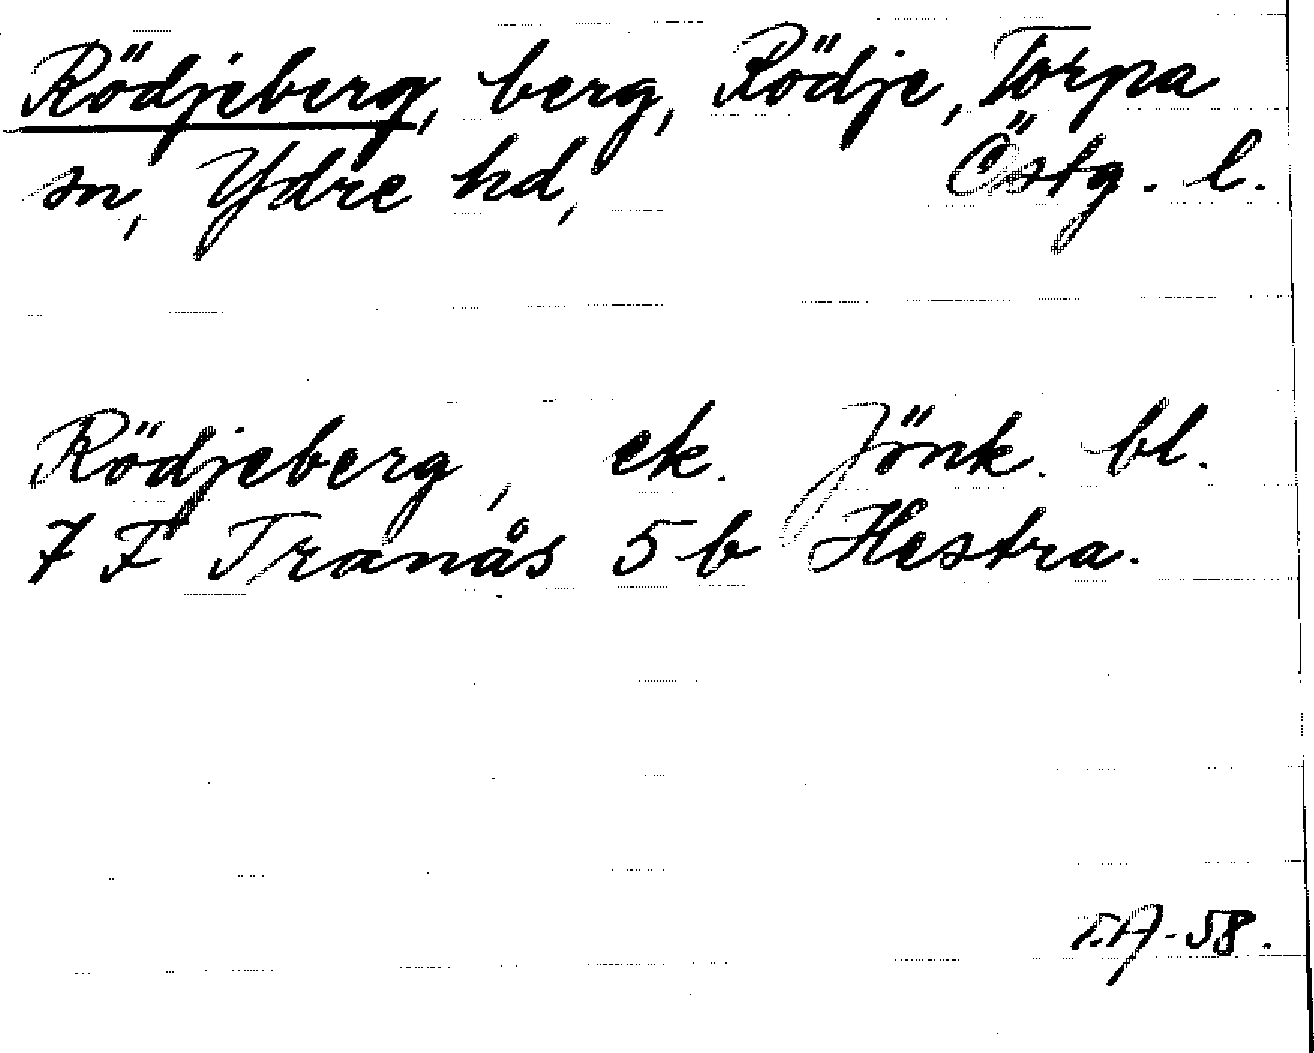 Rödjeberg, berg, Rödje, Torpa
sn, Ydre hd, Östg. l.
Rödjeberg, ek. Jönk. bl.
7 F Tranås 5 b Hestra.
T.A-58.